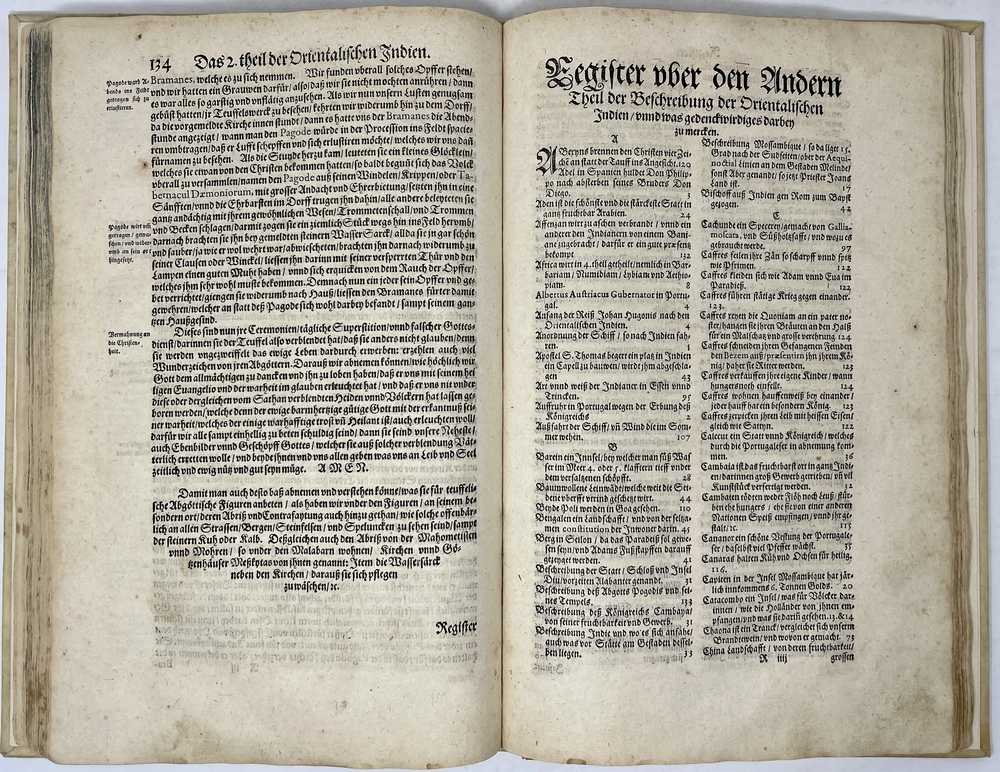 134 Das 2. theil der Orientalischen Indien.
Pagode ward A-
bends ins Feldt
getragen sich zu
erlustieren.
Bramanes, welche es zu sich nemmen. Wir funden vberall solches Opffer stehen/
vnd wir hatten ein Grauwen darfür/ also/ daß wir sie nicht mochten anrühren/ dann
es war alles so garstig vnd vnflätig anzusehen. Als wir nun vnsern Lusten gnugsam
gebüst hatten/ jr Teuffelswerck zu besehen/ kehrten wir widerumb hin zu dem Dorff/
da die vorgemeldte Kirche innen stund/ dann es hatte vns der Bramanes die Abends-
stunde angezeigt/ wann man den Pagode würde in der Procession ins Feldt spacie-
ren vmbtragen/ daß er Lufft schepffen vnd sich erlustiren möchte/ welches wir vns dann
fürnamen zu besehen. Als die Stunde herzu kam/ leuteten sie ein kleines Glöcklein/
welches sie etwan von den Christen bekommen hatten/ so bald begunt sich das Volck
vberall zu versammlen/ namen den Pagode auß seinen Windelen/ Krippen/ oder Ta-
bernacul Dæmoniorum, mit grosser Andacht vnd Ehrerbietung/ setzten jhn in eine
Sänfften/ vnnd die Ehrbarsten im Dorff trugen jhn dahin/ alle andere beleyteten sie
gantz andächtig mit jhrem gewöhnlichen Wesen/ Trommetenschall/ vnd Trommen
vnd Becken schlagen/ darmit zogen sie ein ziemlich Stück wegs hin ins Feld herumb/
Pagode wirt vm
getragen/ gewa-
schen/ vnd wider-
umb an sein ort
hingesetzt.
darnach brachten sie jhn bey gemeldten steinern Wasser Sarck/ allda sie jn gar schön
vnd sauber/ ja wie er wol wehrt war/ abwischeten/ brachten jhn darnach widerumb zu
seiner Clausen oder Winckel/ liessen jhn darinn mit seiner versperrten Thür vnd den
Lampen einen guten Muht haben/ vnnd sich erquicken von dem Rauch der Opffer/
welches jhm sehr wohl muste bekommen. Demnach nun ein jeder sein Opffer vnd ge-
bet verrichte/ giengen sie widerumb nach Hauß/ liessen den Bramanes fürter damit
gewehren/ welcher an statt deß Pagode sich wohl darbey befandt/ sampt seinem gan-
tzen Haußgesind.
Vermahnung an
die Christen-
heit.
Dieses sind nun jre Ceremonien/ tägliche Superstition/ vnnd falscher Gottes-
dienst/ darinnen sie der Teuffel also verblendet hat/ daß sie anders nicht glauben/ denn
sie werden vngezweiffelt das ewige Leben dardurch erwerben: erzehlen auch viel
Wunderzeichen von jren Abgöttern. Darauß wir abnemen können/ wie höchlich wir
Gott dem allmächtigen zu dancken vnd jhn zu loben haben/ daß er vns mit seinem hei-
ligen Euangelio vnd der warheit im glauben erleuchtet hat/ vnd daß er vns nit vnder
diese oder dergleichen vom Sathan verblendten Heiden vnnd Völckern hat lassen ge-
boren werden/ welche denn der ewige barmhertzige gütige Gott mit der erkantnuß sei-
ner warheit/ welches der einige warhafftige trost vñ Heilant ist/ auch erleuchten woll/
darfür wir alle sampt einhellig zu beten schuldig seind/ dann sie seind vnsere Neheste/
auch Ebenbilder vnnd Geschöpff Gottes/ welcher sie auß solcher verblendung Vät-
terlich erretten wolle/ vnd bey jhnen vnd vns allen geben was vns an Leib vnd Seel
zeitlich vnd ewig nütz vnd gut seyn müge. AMEN.
Damit man auch desto baß abnemen vnd verstehen könne/ was sie für teuffeli-
sche Abgöttische Figuren anbeten/ als haben wir vnder den Figuren/ an seinem be-
sondern ort/ deren Abriß vnd Contrafaytung auch hinzu gethan/ wie solche offenbär-
lich an allen Strassen/ Bergen/ Steinfelsen/ vnd Speluncken zu sehen seind/ sampt
der steinern Kuh oder Kalb. Deßgleichen auch den Abriß von der Mahometisten
vnnd Mohren/ so vnder den Malabarn wohnen/ Kirchen vnnd Gö-
tzenhäuser Meßkytas von jhnen genannt: Item die Wassersärck
neben den Kirchen/ darauß sie sich pflegen
zu wäschen/ ꝛc.
Register
Register vber den Andern
Theil der Beschreibung der Orientalischen
Indien/ vnnd was gedenckwirdiges darbey
zu mercken.
A
ABeryns brennen den Christen vier Zei-
chẽ an statt der Tauff ins Angesicht. 129
Adel in Spanien huldet Don Philip-
po nach absterben seines Bruders Don
Diego. 3
Aden ist die schönste vnd die stärckeste Statt in
gantz fruchtbar Arabien. 24
Affenzan wirt zu aschen verbrandt/ vnnd ein
anderer den Indianern von einem Bani-
ane zugebracht/ darfür er ein gut præsent
bekompt 132
Africa wirt in 4. theil getheilt/ nemlich in Bar-
bariam/ Numidiam/ Lybiam vnd Aethio-
piam. 8
Albertus Austriacus Gubernator in Portu-
gal. 4
Anfang der Reiß Johan Hugonis nach den
Orientalischen Indien. 4
Anordnung der Schiff/ so nach Indien fah-
ren 5
Apostel S. Thomas begert ein platz in Indien
ein Capell zu bauwen/ wirdt jhm abgeschla-
gen 43
Art vnnd weiß der Indianer in Essen vnnd
Trincken. 95
Auffruhr in Portugal wegen der Erbung deß
Königreichs 2
Außfahrt der Schiff/ vñ Wind die im Som-
mer wehen. 107
B
Barein ein Innsel/ bey welcher man süß Was-
ser im Meer 4. oder 5. klafftern tieff vnder
dem versaltzenen schöpfft. 28
Baumwollene Leinwädt/ welche weit die Sei-
dene vbertrifft vnd geschetzt wirt. 44
Beyde Poli werden in Goa gesehen. 110
Bengalen ein Landschafft/ vnd von der seltza-
men constitution der Inwoner darin. 45
Berg in Seilon/ da das Paradeiß sol gewe-
sen seyn/ vnd Adams Fußstapffen darauff
gezeiget werden. 41
Beschreibung der Statt/ Schloß vnd Insel
Diu/ vorzeiten Alabanter genandt. 31
Beschreibung deß Abgotts Pogodis vnd sei-
nes Tempels. 133
Beschreibung deß Königreichs Cambaya/
von seiner fruchtbarkeit vnd Gewerb. 31
Beschreibung Indie vnd wo es sich anfahe/
auch was vor Stätte am Gestaden dessel-
ben liegen. 33
Beschreibung Mossambique/ so da liget 15.
Grad nach der Sudseiten/ ober der Aequi-
noctial Linien an dem Gestaden Melinde/
sonst Aber genandt/ so jetzt Priester Joans
Land ist. 17
Bischoff auß Indien gen Rom zum Bapst
gezogen. 42
C
Cachunde ein Specerey/ gemacht von Gallia-
moscata, vnd Süßholtzsafft/ vnd wozu es
gebraucht werde. 97
Caffres feilen jhre Zän so scharpff vnnd spitz
wie Pfrimen. 122
Caffres kleiden sich wie Adam vnnd Eua im
Paradeiß. 122
Caffres führen stätige Krieg gegen einander.
123.
Caffres reyen die Quoniam an ein pater no-
ster/ hangen sie jhren Bräuten an den Halß
für ein Malschatz vnd grosse verehrung 124
Caffres schneiden jhren Gefangenen Feinden
den Bezem auß/ præsentirn jhn jhrem Kö-
nig/ daher sie Ritter werden. 123
Caffres verkäuffen jhre eigene Kinder/ wann
hungersnoth einfellt. 124
Caffres wohnen hauffenweiß bey einander/
jeder hauff hat ein besondern König. 123
Caffres zerpicken jhren leib mit heissen Eisen/
gleich wie Sattyn. 122
Calecut ein Statt vnnd Königreich/ welches
durch die Portugaleser in abnemung kom-
men. 36
Cambaia ist das fruchtbarst ort in gantz Indi-
en/ darinnen groß Gewerb getrieben/ vñ vil
Kunststück verfertigt werden. 32
Cambaien tödten weder Flöh noch Leuß/ stür-
ben eht hungers/ eht sie von einer anderen
Nationen Speiß empfingen/ vnnd jhr ge-
stalt/ ꝛc. 115
Cananor ein schöne Vestung der Portugale-
ser/ daselbst viel Pfeffer wächst. 35
Canaras halten Küh vnd Ochsen für heilig.
116.
Capiten in der Insel Mossambique hat jär-
lich innkommens 6. Tonnen Golds. 20
Catacombo ein Insel/ was für Völcker dar-
innen/ wie die Holländer von jhnen em-
pfangen/ vnd was sie darin gesehen. 13. & 14
Chaona ist ein Tranck/ vergleichet sich vnserm
Brandtewein/ vnd wovon er gemacht. 73
China Landschafft/ von deren fruchtbarkeit/
R iiij grossen